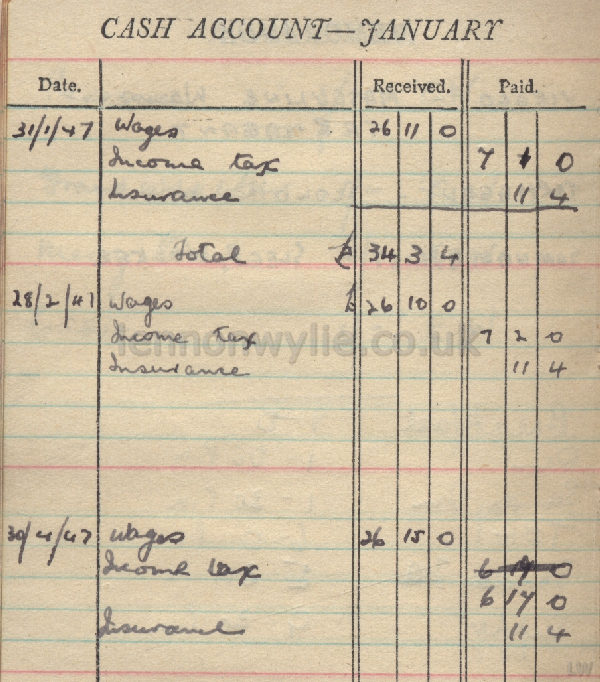 CASH ACCOUNT—JANUARY
Date. Received. Paid.
31/1/47 Wages 26 11 0
Income tax 7 1 0
Insurance 11 4
Total £ 34 3 4
28/2/47 Wages £ 26 10 0
Income tax 7 2 0
lennonwylie.co.uk
Insurance 11 4
30/4/47 Wages 26 15 0
Income tax 6 0
6 17 0
Insurance 11 4
LW